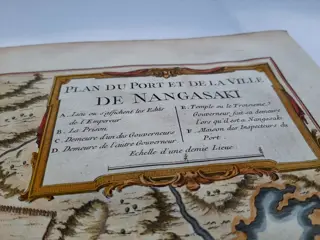 PLAN DU PORT ET DE LA VILLE
DE NANGASAKI
A. Lieu ou s'affichent les Edits
de l'Empereur
B. La Prison
C. Demeure d'un des Gouverneurs
D. Demeure de l'autre Gouverneur
E. Temple ou le Troisieme
Gouverneur fait sa demeure
Lors qu'il est a Nangasaki
F. Maison des Inspecteurs du
Port.
Echelle d'une demie Lieue